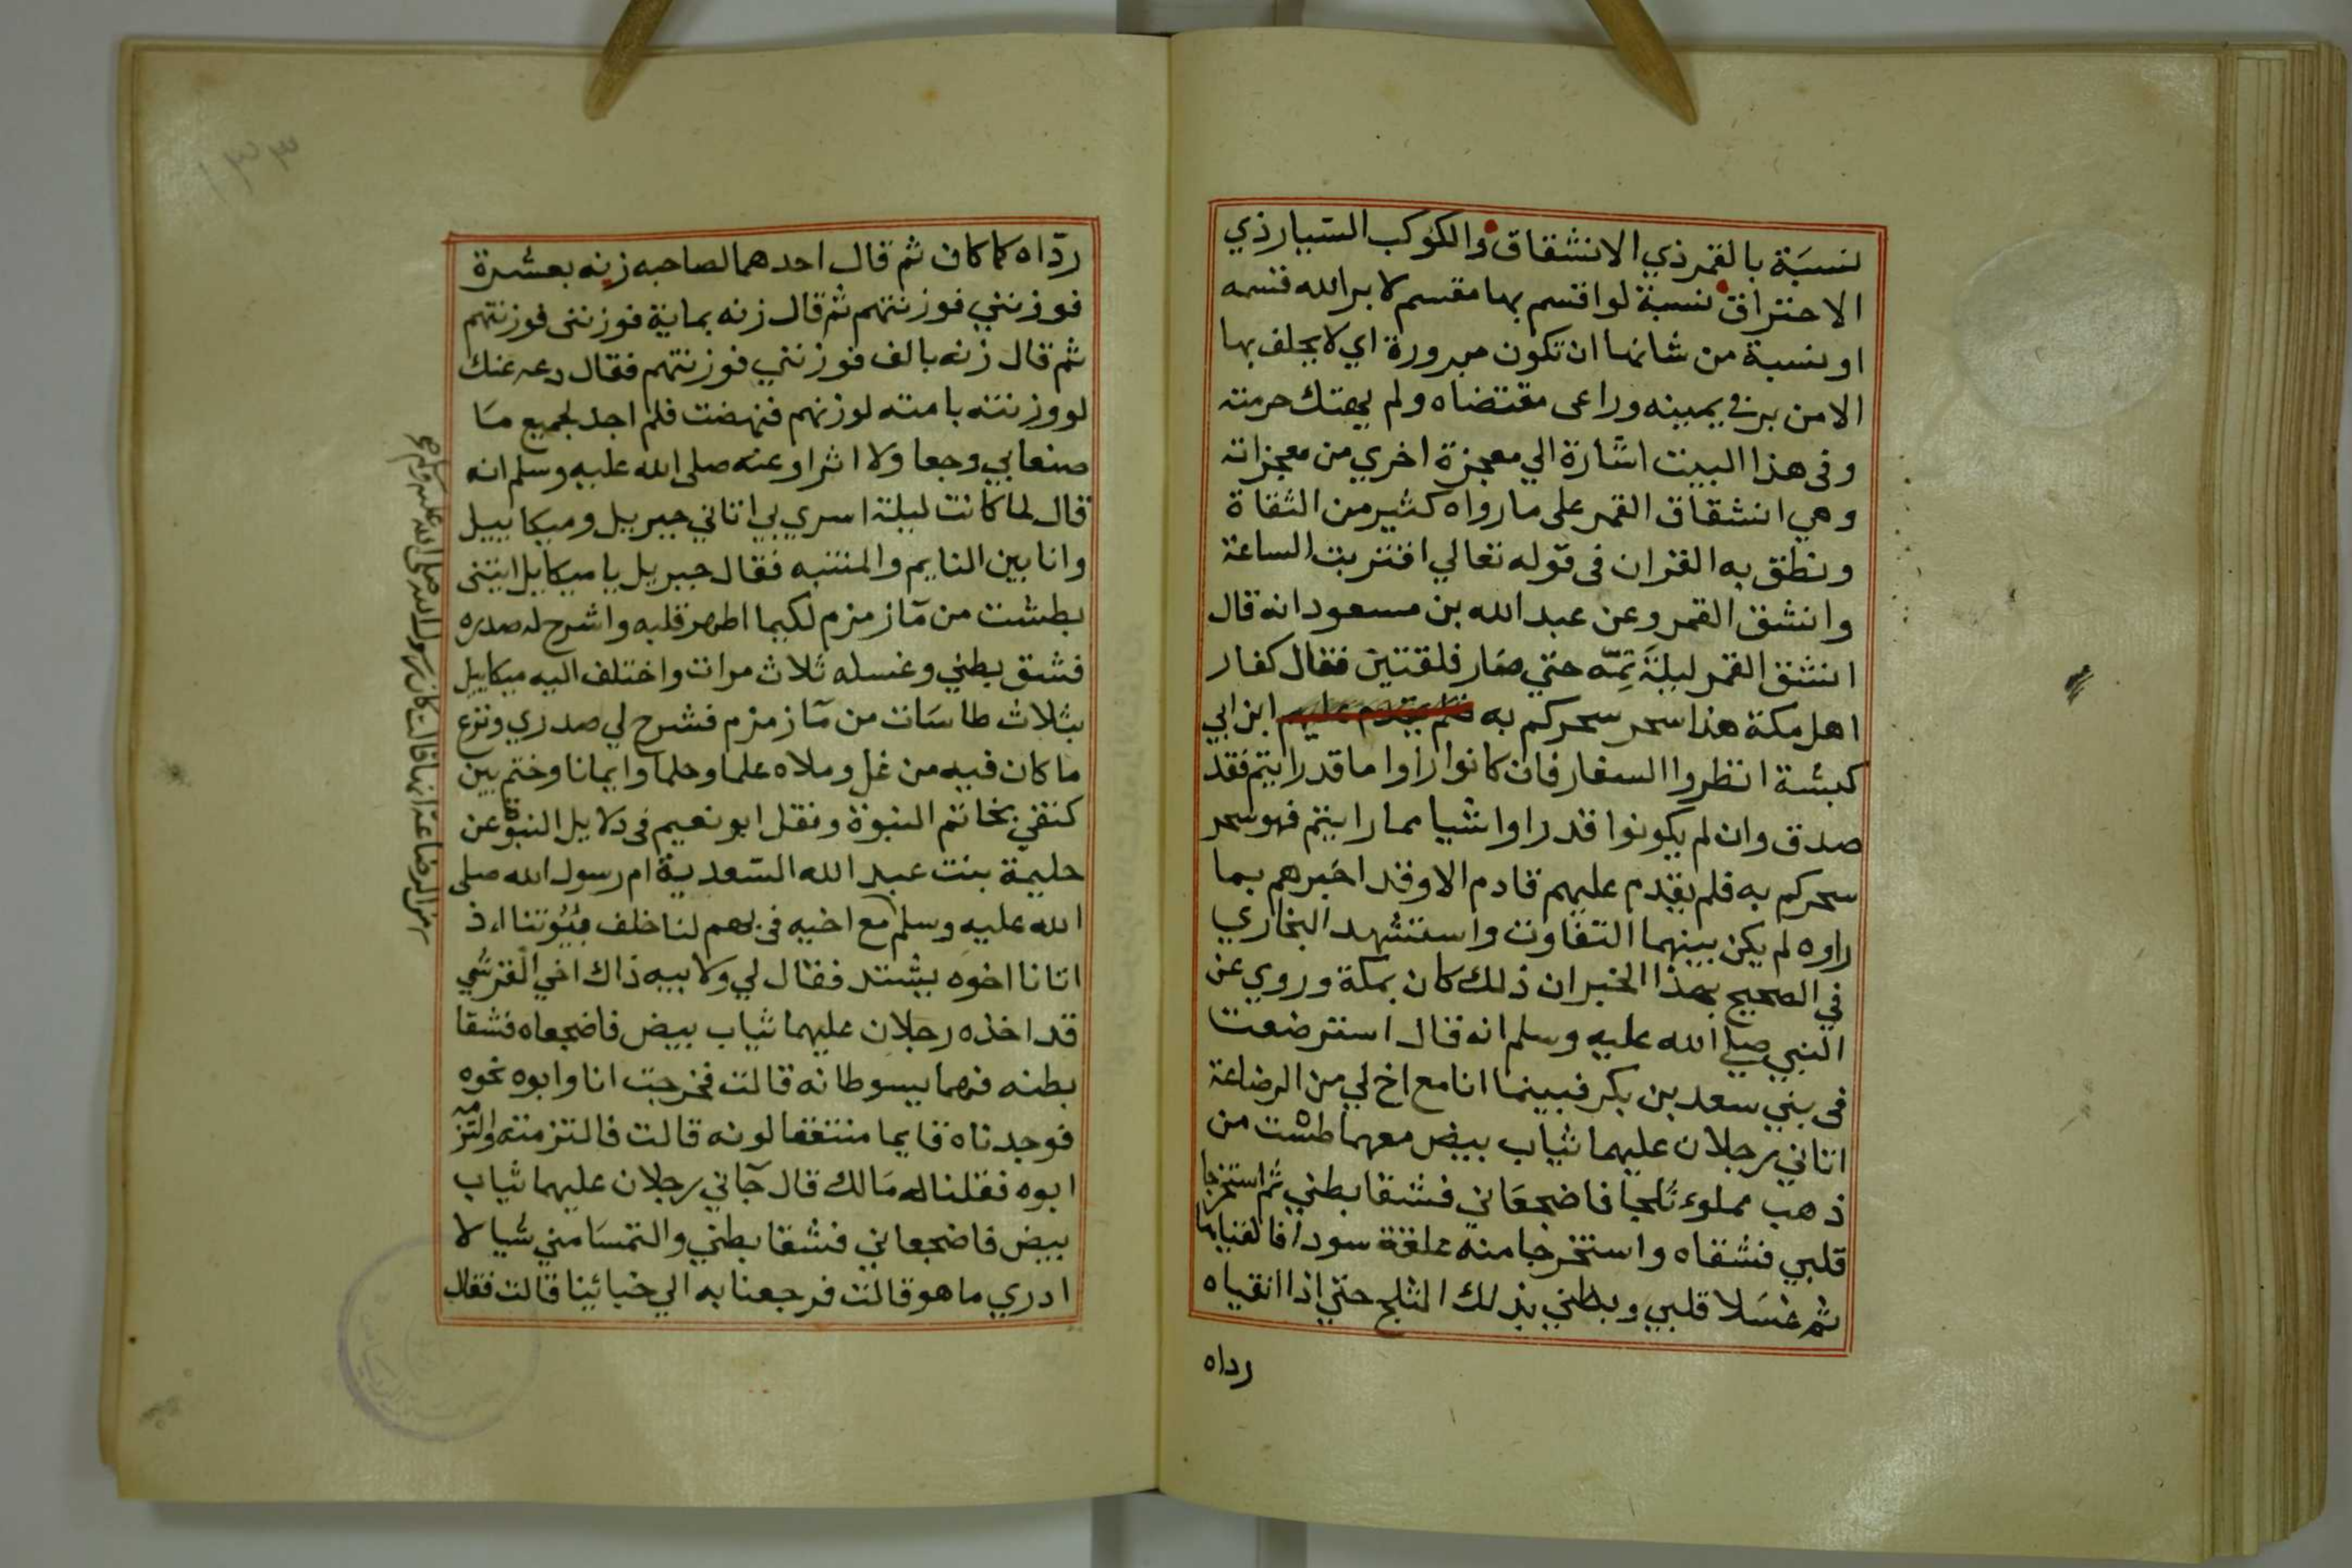 نسبة بالقمر ذي الانشقاق والكوكب السيار ذي
الاحتراق نسبة لو اقسم بها مقسم لا بر الله قسمه
او نسبة من شانها ان تكون مبرورة اي لا يحلف بها
الا من بر في يمينه وراعى مقتضاه ولم يهتك حرمته
وفى هذا البيت اشارة الي معجزة اخري من معجزاته
وهي انشقاق القمر على ما رواه كثير من الثقاة
ونطق به القران فى قوله تعالي اقتربت الساعة
وانشق القمر وعن عبد الله بن مسعود انه قال
انشق القمر ليلة تمّه حتي صار فلقتين فقال كفار
اهل مكة هذا سحر سحركم به ابن ابي
كبشة انظروا السفار فان كانوا راوا ما قد رايتم فقد
صدق وان لم يكونوا قد راوا شيا مما رايتم فهو سحر
سحركم به فلم يقدم عليهم قادم الا وقد اخبرهم بما
راوه لم يكن بينهما التفاوت واستشهد البخاري
في الصحيح بهذا الخبر ان ذلك كان بمكة وروي عن
النبي صلي الله عليه وسلم انه قال استرضعت
فى بني سعد بن بكر فبينما انا مع اخ لي من الرضاعة
اتاني رجلان عليهما ثياب بيض معهما طشت من
ذهب مملوء ثلجا فاضجعاني فشقا بطني ثم استخرجا
قلبي فشقاه واستخرجا منه علقة سودا فالقياها
ثم غسلا قلبي وبطني بذلك الثلج حتي اذا انقياه
رداه
ردّاه كما كان ثم قال احدهما لصاحبه زنه بعشرة
فوزنني فوزنتهم ثم قال زنه بماية فوزننى فوزنتهم
ثم قال زنه بالف فوزنني فوزنتهم فقال دعه عنك
لو وزنته بامته لوزنهم فنهضت فلم اجد لجميع ما
صنعا بي وجعا ولا اثرا وعنه صلى الله عليه وسلم انه
قال لما كانت ليلة اسري بي اتاني جبريل وميكاييل
وانا بين النايم والمنتبه فقال جبريل يا ميكايل ايتنى
بطشت من مآ زمزم لكيما اطهر قلبه واشرح له صدره
فشق بطني وغسله ثلاث مرات واختلف اليه ميكاييل
بثلاث طاسات من مآ زمزم فشرح لي صدري ونزع
ما كان فيه من غل وملاه علما وحلما وايمانا وختم بين
كتفي بخاتم النبوة ونقل ابو نعيم فى دلايل النبوة عن
حليمة بنت عبد الله السعدية ام رسول الله صلى
الله عليه وسلم مع اخيه فى بهم لنا خلف بيوتنا اذ
اتانا اخوه يشتد فقال لي ولابيه ذاك اخي القرشي
قد اخذه رجلان عليهما ثياب بيض فاضجعاه فشقا
بطنه فهما يسوطانه قالت فخرجت انا وابوه نحوه
فوجدناه قايما منتقعا لونه قالت فالتزمته والتزمه
ابوه فقلنا له مالك قال جآني رجلان عليهما ثياب
بيض فاضجعاني فشقا بطني والتمسا مني شيا لا
ادري ما هو قالت فرجعنا به الي خبائنا قالت فقال
من الرضاعة انها قالت كان رسول الله صلى الله عليه وسلم
١٣٣